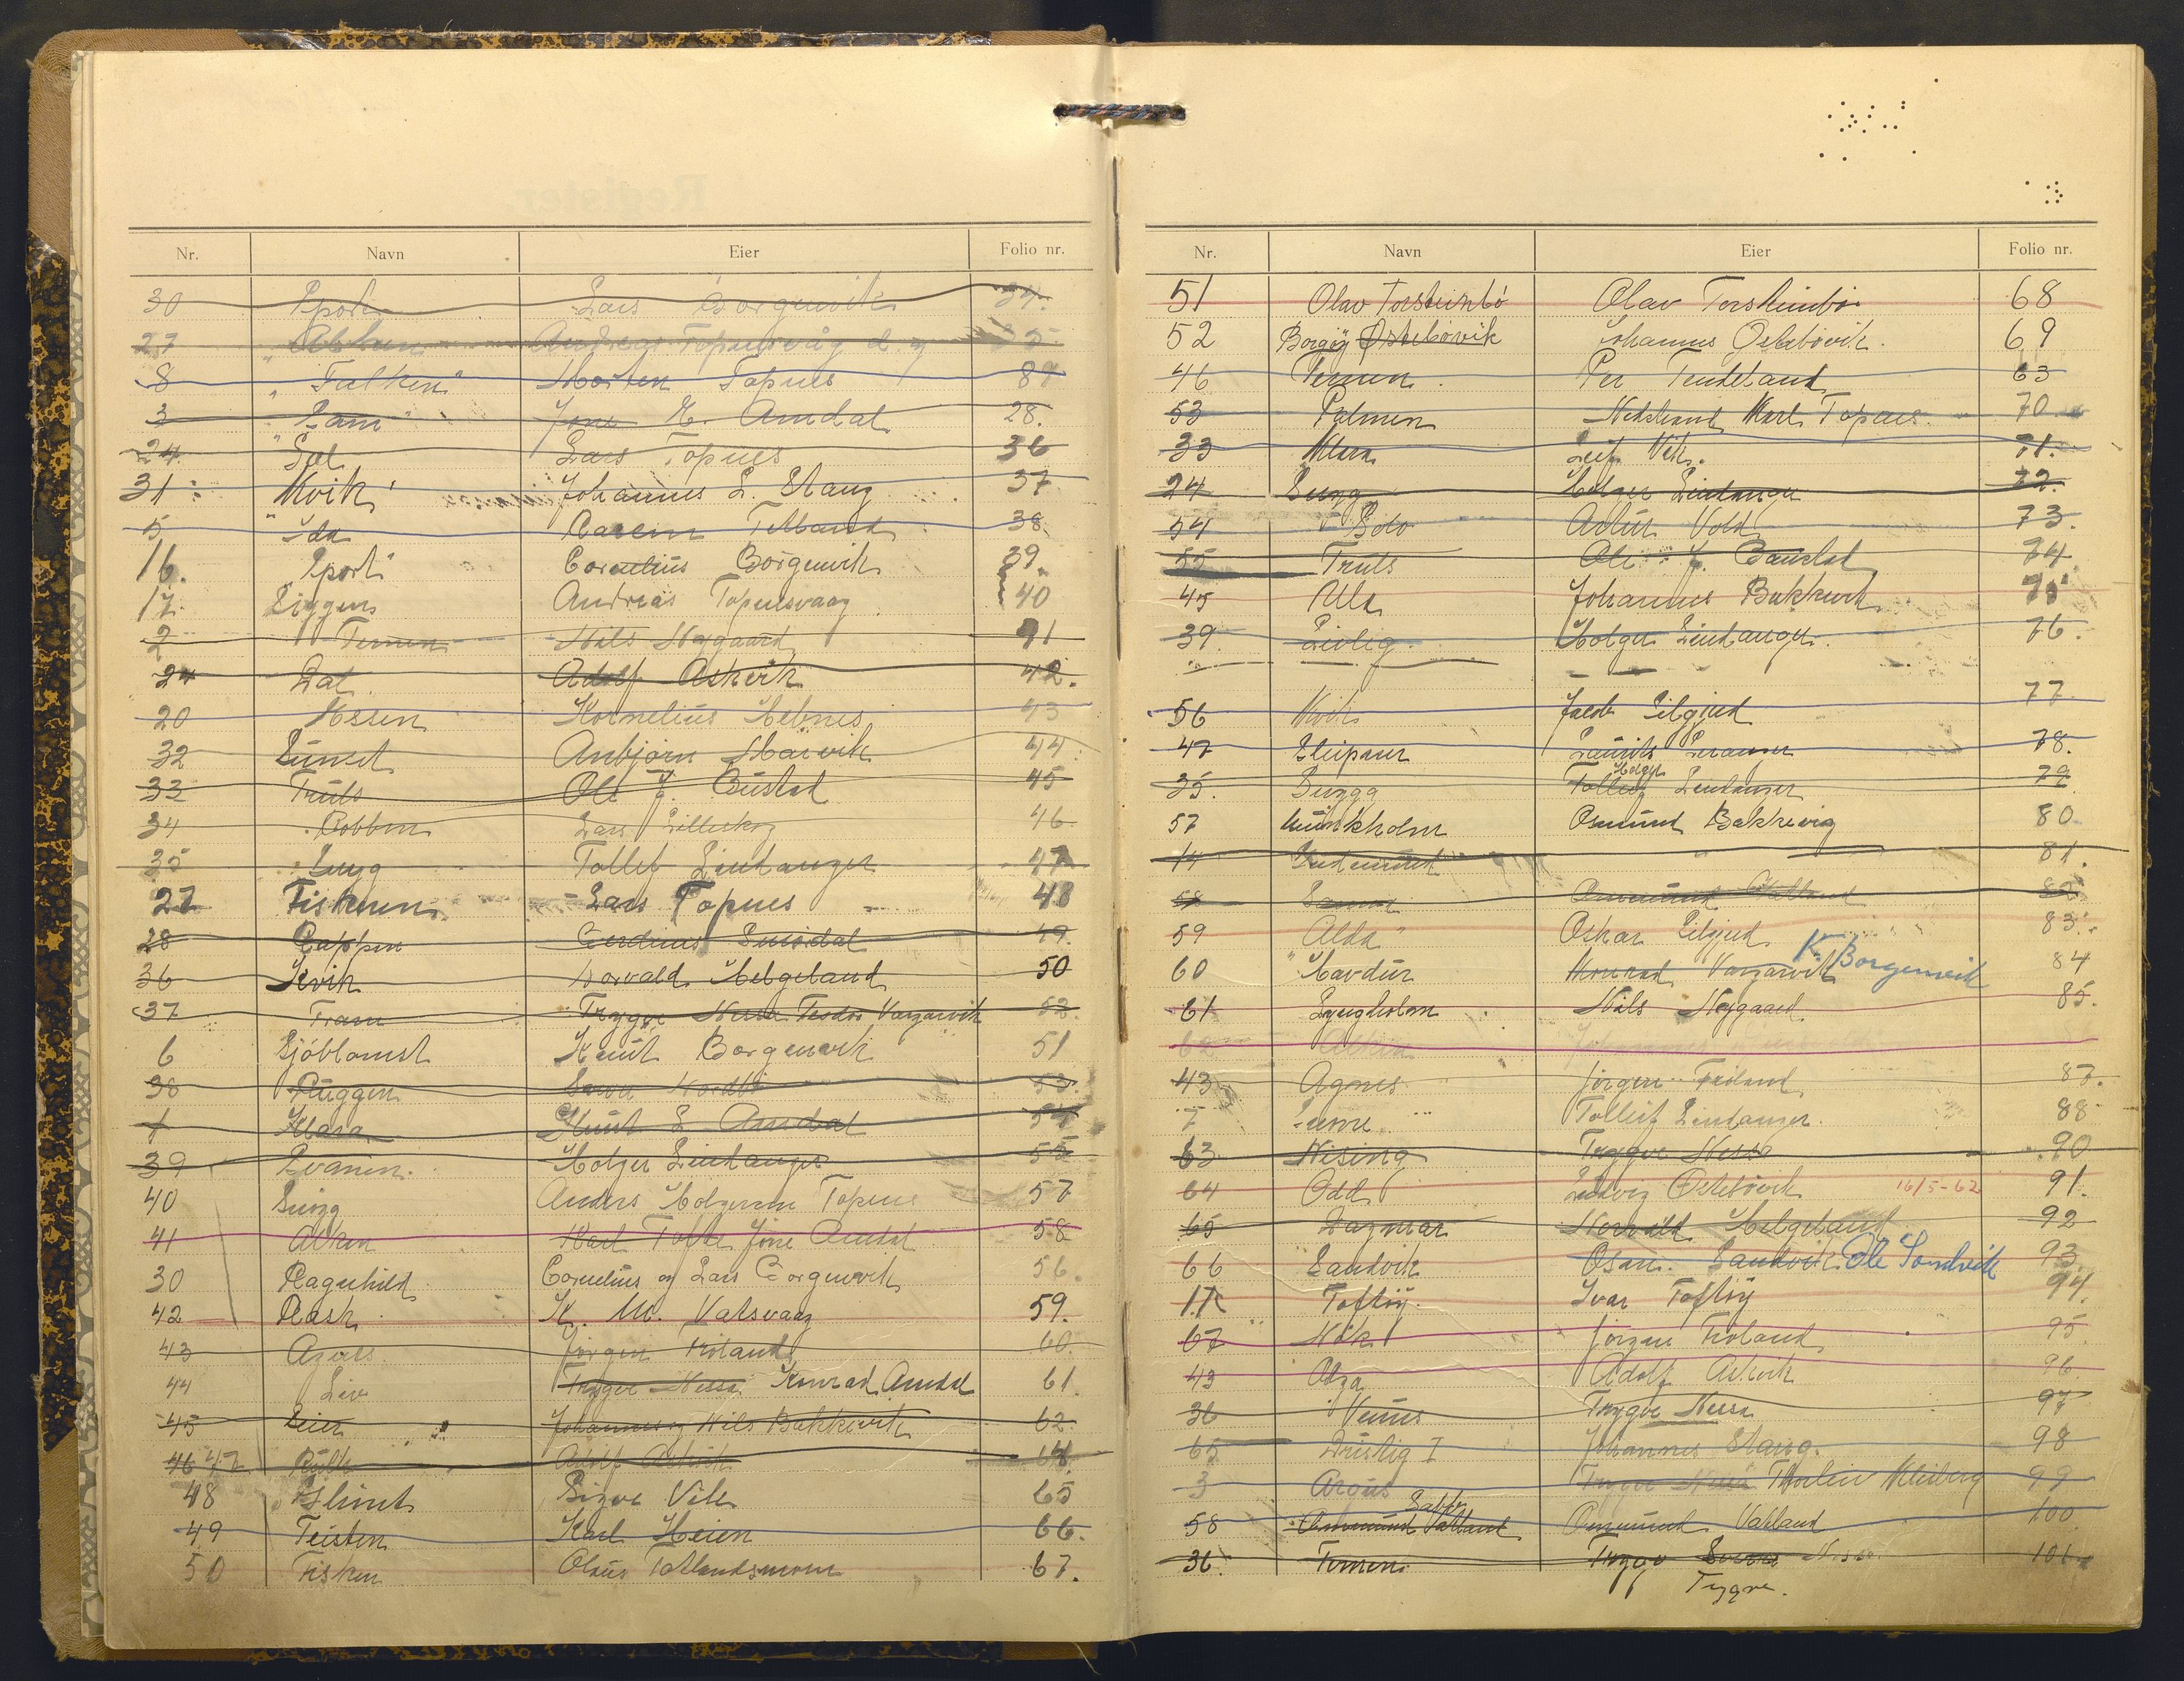 Nr. Navn Eier Folio nr.
30 Sport Lars Borgenvik 34.
27 Andreas Topnesvåg
8 "Falken" Morten Topnes 89
3 "Fam" Jone E. Amdal 28.
24 Sol Lars Topnes 36
31 Kvik Johannes L. Stang 37
5 "Ida 38
16. "Sport" Cornelius Borgenvik 39.
17. Siggen Andreas Topnesvaag 40
2 Ternen Nils Nygaard 41
24 Dal Adolf Askvik 42.
20 Kornelius Hebnes 43
32 Sunst Anbjørn Marvik 44
33 Truls Ole J. Bustad 45
34 Kobben Lars Lilleskog 46
35 Snyg Tollef Lindanger 47
27 Fiskeren Lars Topnes 48
28 Cappen 49.
36 Kvik Torvald Helgeland 50
37 Fram Trygve Nessa Teodor Vargarvik 52.
6 Sjöblomst Knut Borgenvik 51
38 Ruggen 53.
1 Klara Knut L. Amdal 54
39 Svanen Holger Lindanger 55
40 Snögg Anders Holgersen Topnes 57
41 Alken Karl Jone Amdal 58
30 Ragnhild Cornelius og Lars Borgenvik 56.
42 Rask K. M. Vatsvaag 59.
43 Agnes Jørgen Frøland 60.
44 Liv Trygve Nessa Konrad Amdal 61.
45 Leier Johannes og Nils Bakkevik 62.
46 47 Adolf Askvik 64.
48 Glimt Sigve Vik 65
49 Teisten Karl Heien 66.
50 Fisken Olaus Tatlandsmoen 67.
Nr. Navn Eier Folio nr.
51 Olav Torsteinbö Olav Torsteinbö 68
52 Borgöy Östebövik Johannes Östebövik. 69
46 Ternen. Per Tendeland 63
53 Palmen Nedstrand Karl Topnes 70
33 Klara Leif Vik. 71.
24 Snygg Holger Lindanger 72.
54 Solo Artur Vold 73.
55 Truls Ole J. Baustad 74
45 Ulla Johannes Bakkevik 75
39. Livlig Holger Lindanger. 76.
56 Kvik Jacob Eilgjed 77
47 Sleipner Laurits Leranger 78.
35. Snygga Tolleif Holger Lindanger 79
57 Munkholm Osmund Bakkevig 80
14 81.
58 Ommund Vatland 82.
59 "Alda" Oskar Eilgjed 83.
60 "Havdur Konrad Vargarvik K. Borgenvik 84
61 Lyngholm Nils Nygaard. 85.
62 Alken Johannes
43 Agnes Jörgen Fröland 87.
7 Tolleif Lindanger. 88
63 Nising Trygve Nessa 90
64 Odd Ludvig Östebövik 16/5-62 91.
65 Dagmar Helgeland 92
66 Sandvik Osm. Sandvik Ole Sandvik 93.
17 Toftöy. Ivar Toftöy 94.
67 Nök Jörgen Fröland 95
49 Olga Adolf Askvik 96
36 Venus Trygve Nessa 97
65 Drustig I Johannes Stang. 98
3 Argus Trygve Nessa Thorleiv Kleiberg 99
58 Ommund Vatland Ommund Vatland 100
36. Ternen. Trygve Nessa. 101.
Tygve.